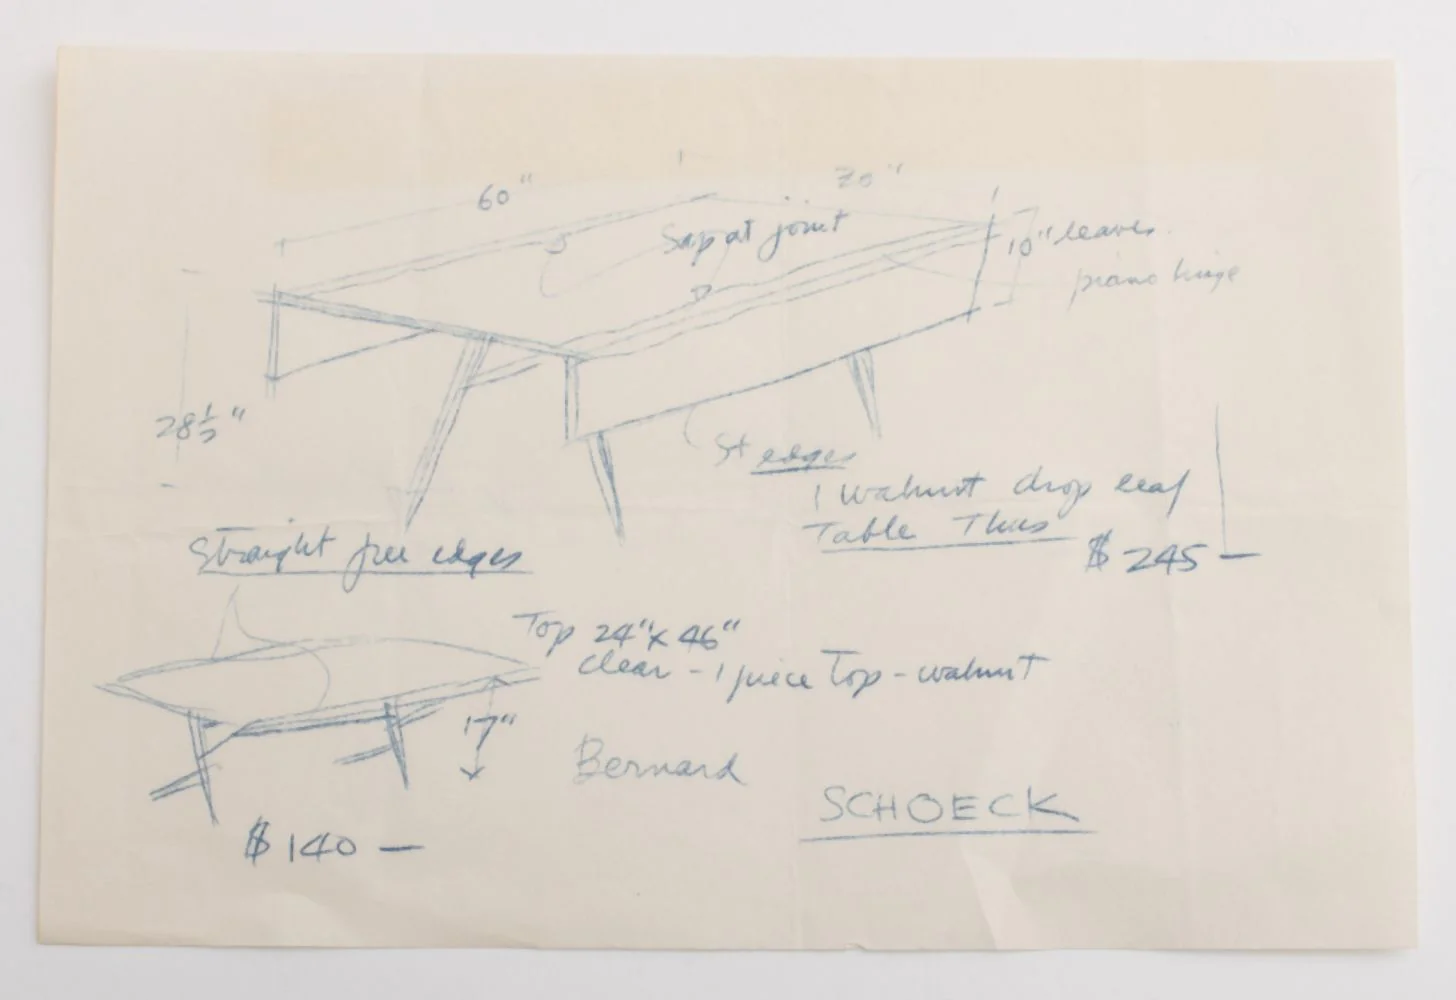 60"
Sap at joint
10" leaves
piano hinge
28½"
St edges
1 walnut drop leaf
Table Thus
$245 —
Straight free edges
Top 24" x 46"
clear - 1 piece Top - walnut
17"
Bernard
SCHOECK
$140 —